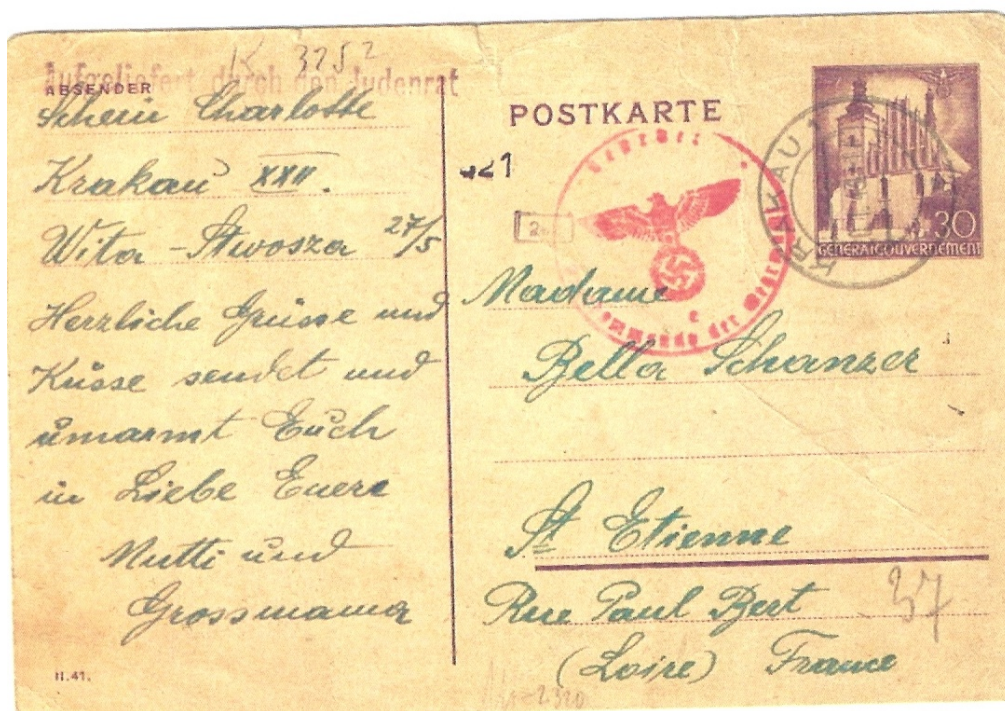 K 3252
Aufgeliefert durch den Judenrat
ABSENDER
Schein Charlotte
Krakau XXII.
Wita - Stwosza 27/5
Herzliche Grüsse und
Küsse sendet und
umarmt Euch
in Liebe Euere
Mutti und
Grossmama
II.41.
POSTKARTE
321
KRAKAU 1
30
GENERALGOUVERNEMENT
Madame
Bella Schanzer
St Etienne
Rue Paul Bert
37
(Loire) France